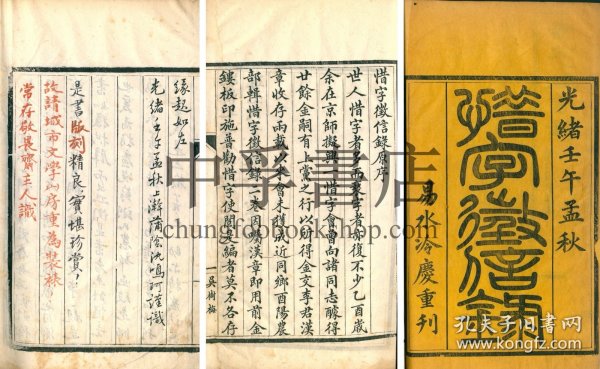 光緒壬午孟秋
惜字徵信錄
易水冷慶重刊
惜字徵信錄原序
世人惜字者多而褻字者亦復不少乙酉歲
余在京師擬興一惜字會曾向諸同志醵得
廿餘金嗣有上黨之行以所得金交李君漢
章收存兩載以來會未獲成近同鄉酉陽農
部輯惜字徵信錄一本因囑漢章即用前金
鏤板印施普勸惜字使閱是編者莫不各存
一 吳樹梅
緣起如左
光緒壬午孟秋上澣蒲陰沈鳴珂謹識
是書版刻精良實堪珍賞
故請城市文學山房重為裝裱
常存敬畏齋主人識
中孚書店
chungfoobookshop.com
孔夫子旧书网